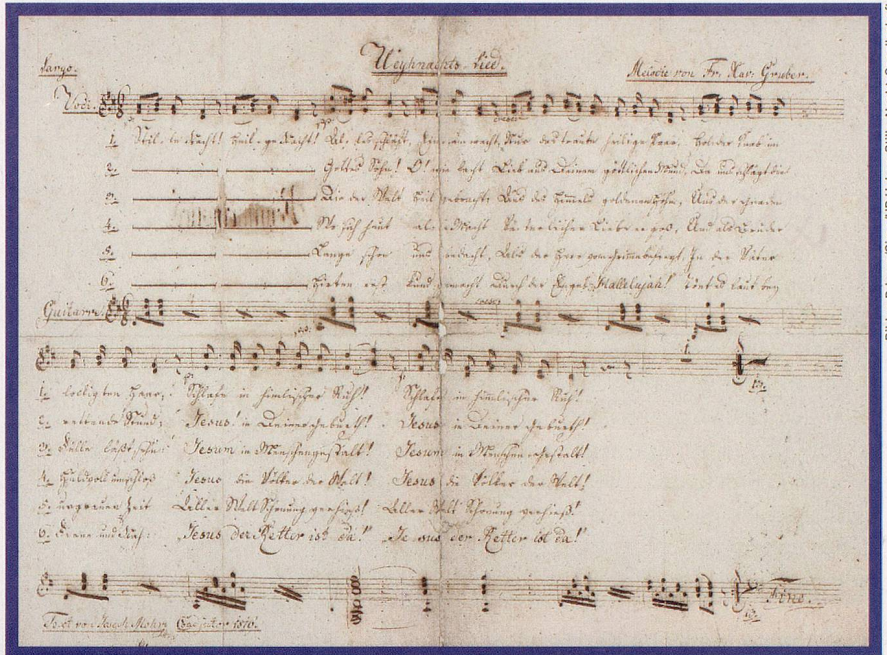 Largo.
Weyhnachts-Lied.
Melodie von Fr. Xav. Gruber.
Voci.
1. Stil-le Nacht! Heil-ge Nacht! Al-les schläft, Einsam wacht, Nur das traute heilige Paar. Holder Knab im
2. Gottes Sohn! O! wie lacht Lieb aus Deinem göttlichen Mund, Da uns schlägt die
3. Die der Welt Heil gebracht; Aus des Himmels goldenen Höhn, Aus der Gnaden
4. Wo sich heut alle Macht Väterlicher Liebe ergoß, Und als Bruder
5. Lange schon uns bedacht, Als der Herr vom Grimme befreyt, In der Väter
6. Hirten erst kund gemacht Durch der Engel Hallelujah! Tönt es laut bey
Guitarre.
cresc.
1. lockigten Haar; Schlafe in himlischer Ruh! Schlafe in himlischer Ruh!
2. rettende Stund; Jesus! in Deiner Geburth! Jesus in Deiner Geburth!
3. Fülle läßt sehn: Jesum in Menschengestalt! Jesum in Menschengestalt!
4. Huldvoll umschloß Jesus die Völker der Welt! Jesus die Völker der Welt!
5. urgrauer Zeit Aller Welt Schonung verhieß! Aller Welt Schonung verhieß!
6. Ferne und Nah: "Jesus der Retter ist da!" "Jesus der Retter ist da!"
Fine.
Text von Joseph Mohr Coadjutor 1816.